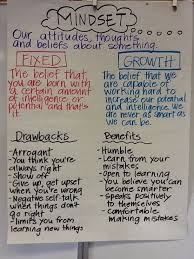 MINDSET
Our attitudes, thoughts
and beliefs about something.
FIXED
The belief that
you are born with
a certain amount
of intelligence or
potential and that's
it.
GROWTH
The belief that we
are capable of
working hard to
increase our potential
and intelligence
we are never as smart as
we can be.
Drawbacks
-Arrogant
-You think you're
always right
-Show off
-Give up, get upset
when you're wrong
-Negative self-talk
when things don't
go right
-limits you from
learning new things
Benefits
-Humble
-Learn from your
mistakes
-Open to learning
-You believe you can
become smarter
-Speaks positively
to themselves
-Comfortable
making mistakes